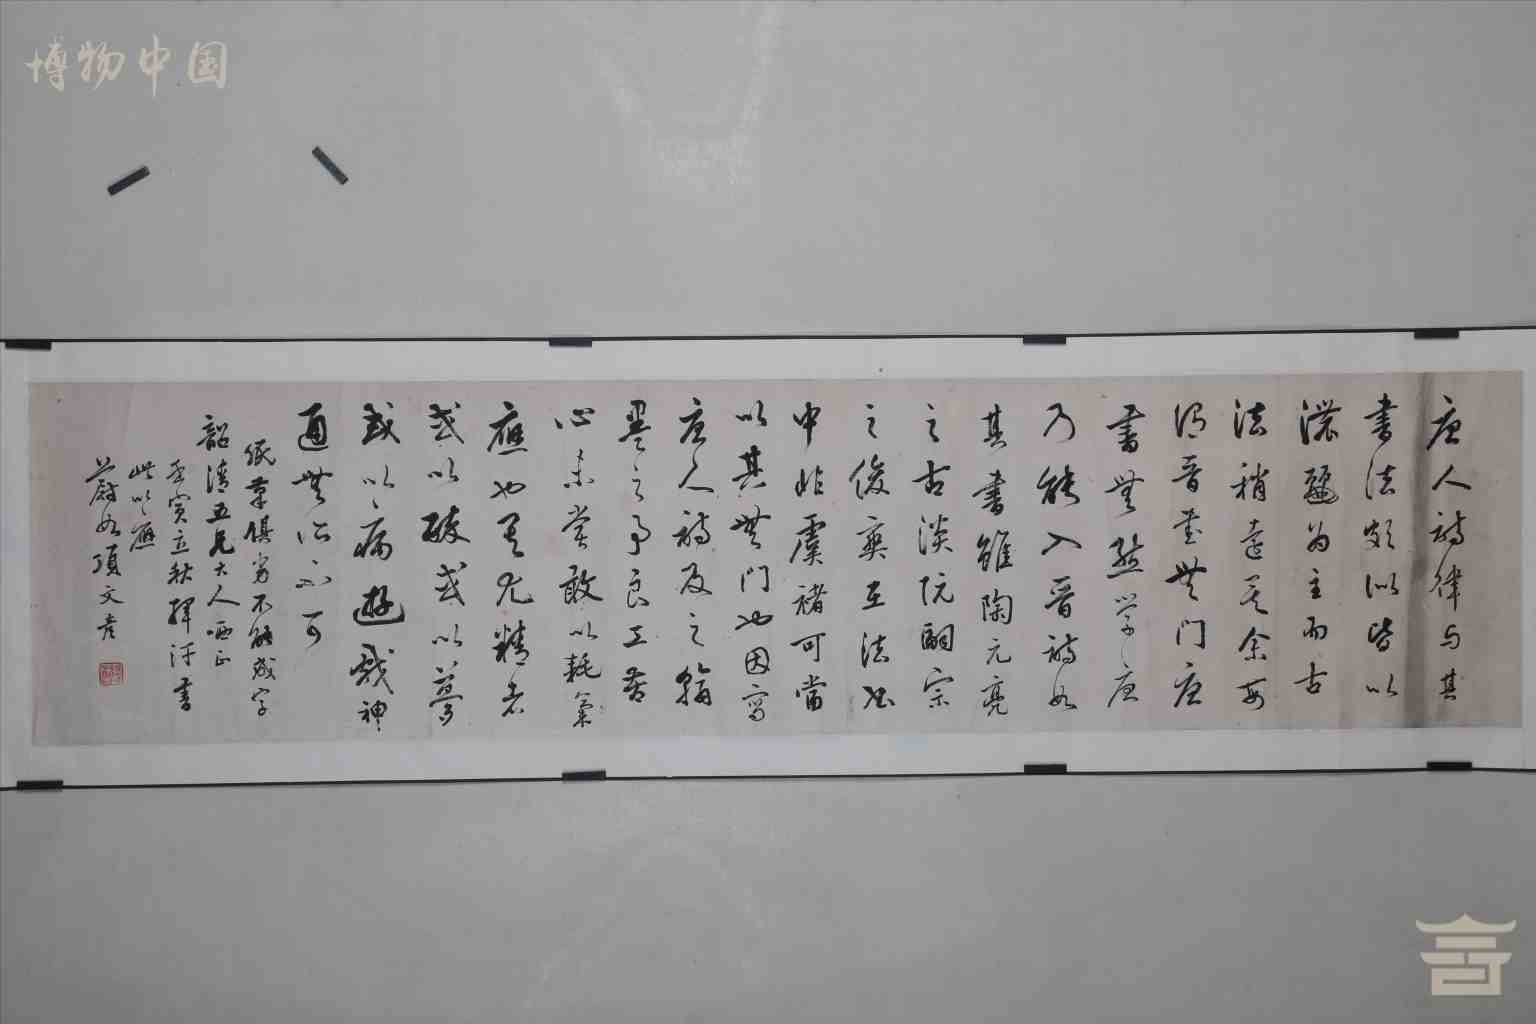 博物中国
唐人诗律与其
书法颇似皆以
浓丽为主而古
法稍远矣余每
谓晋书无门唐
书无态学唐
乃能入晋诗如
其书虽陶元亮
之古淡阮嗣宗
之俊爽在法书
中非虞褚可当
以其无门也因写
唐人诗及之翰
墨之事良工苦
心未尝敢以耗气
应也其尤精者
或以醉或以梦
或以病游戏神
通无所不可
纸草俱劣不能成字
韶清五兄大人哂正
壬寅立秋挥汗书
此以应
蔚如项文彦